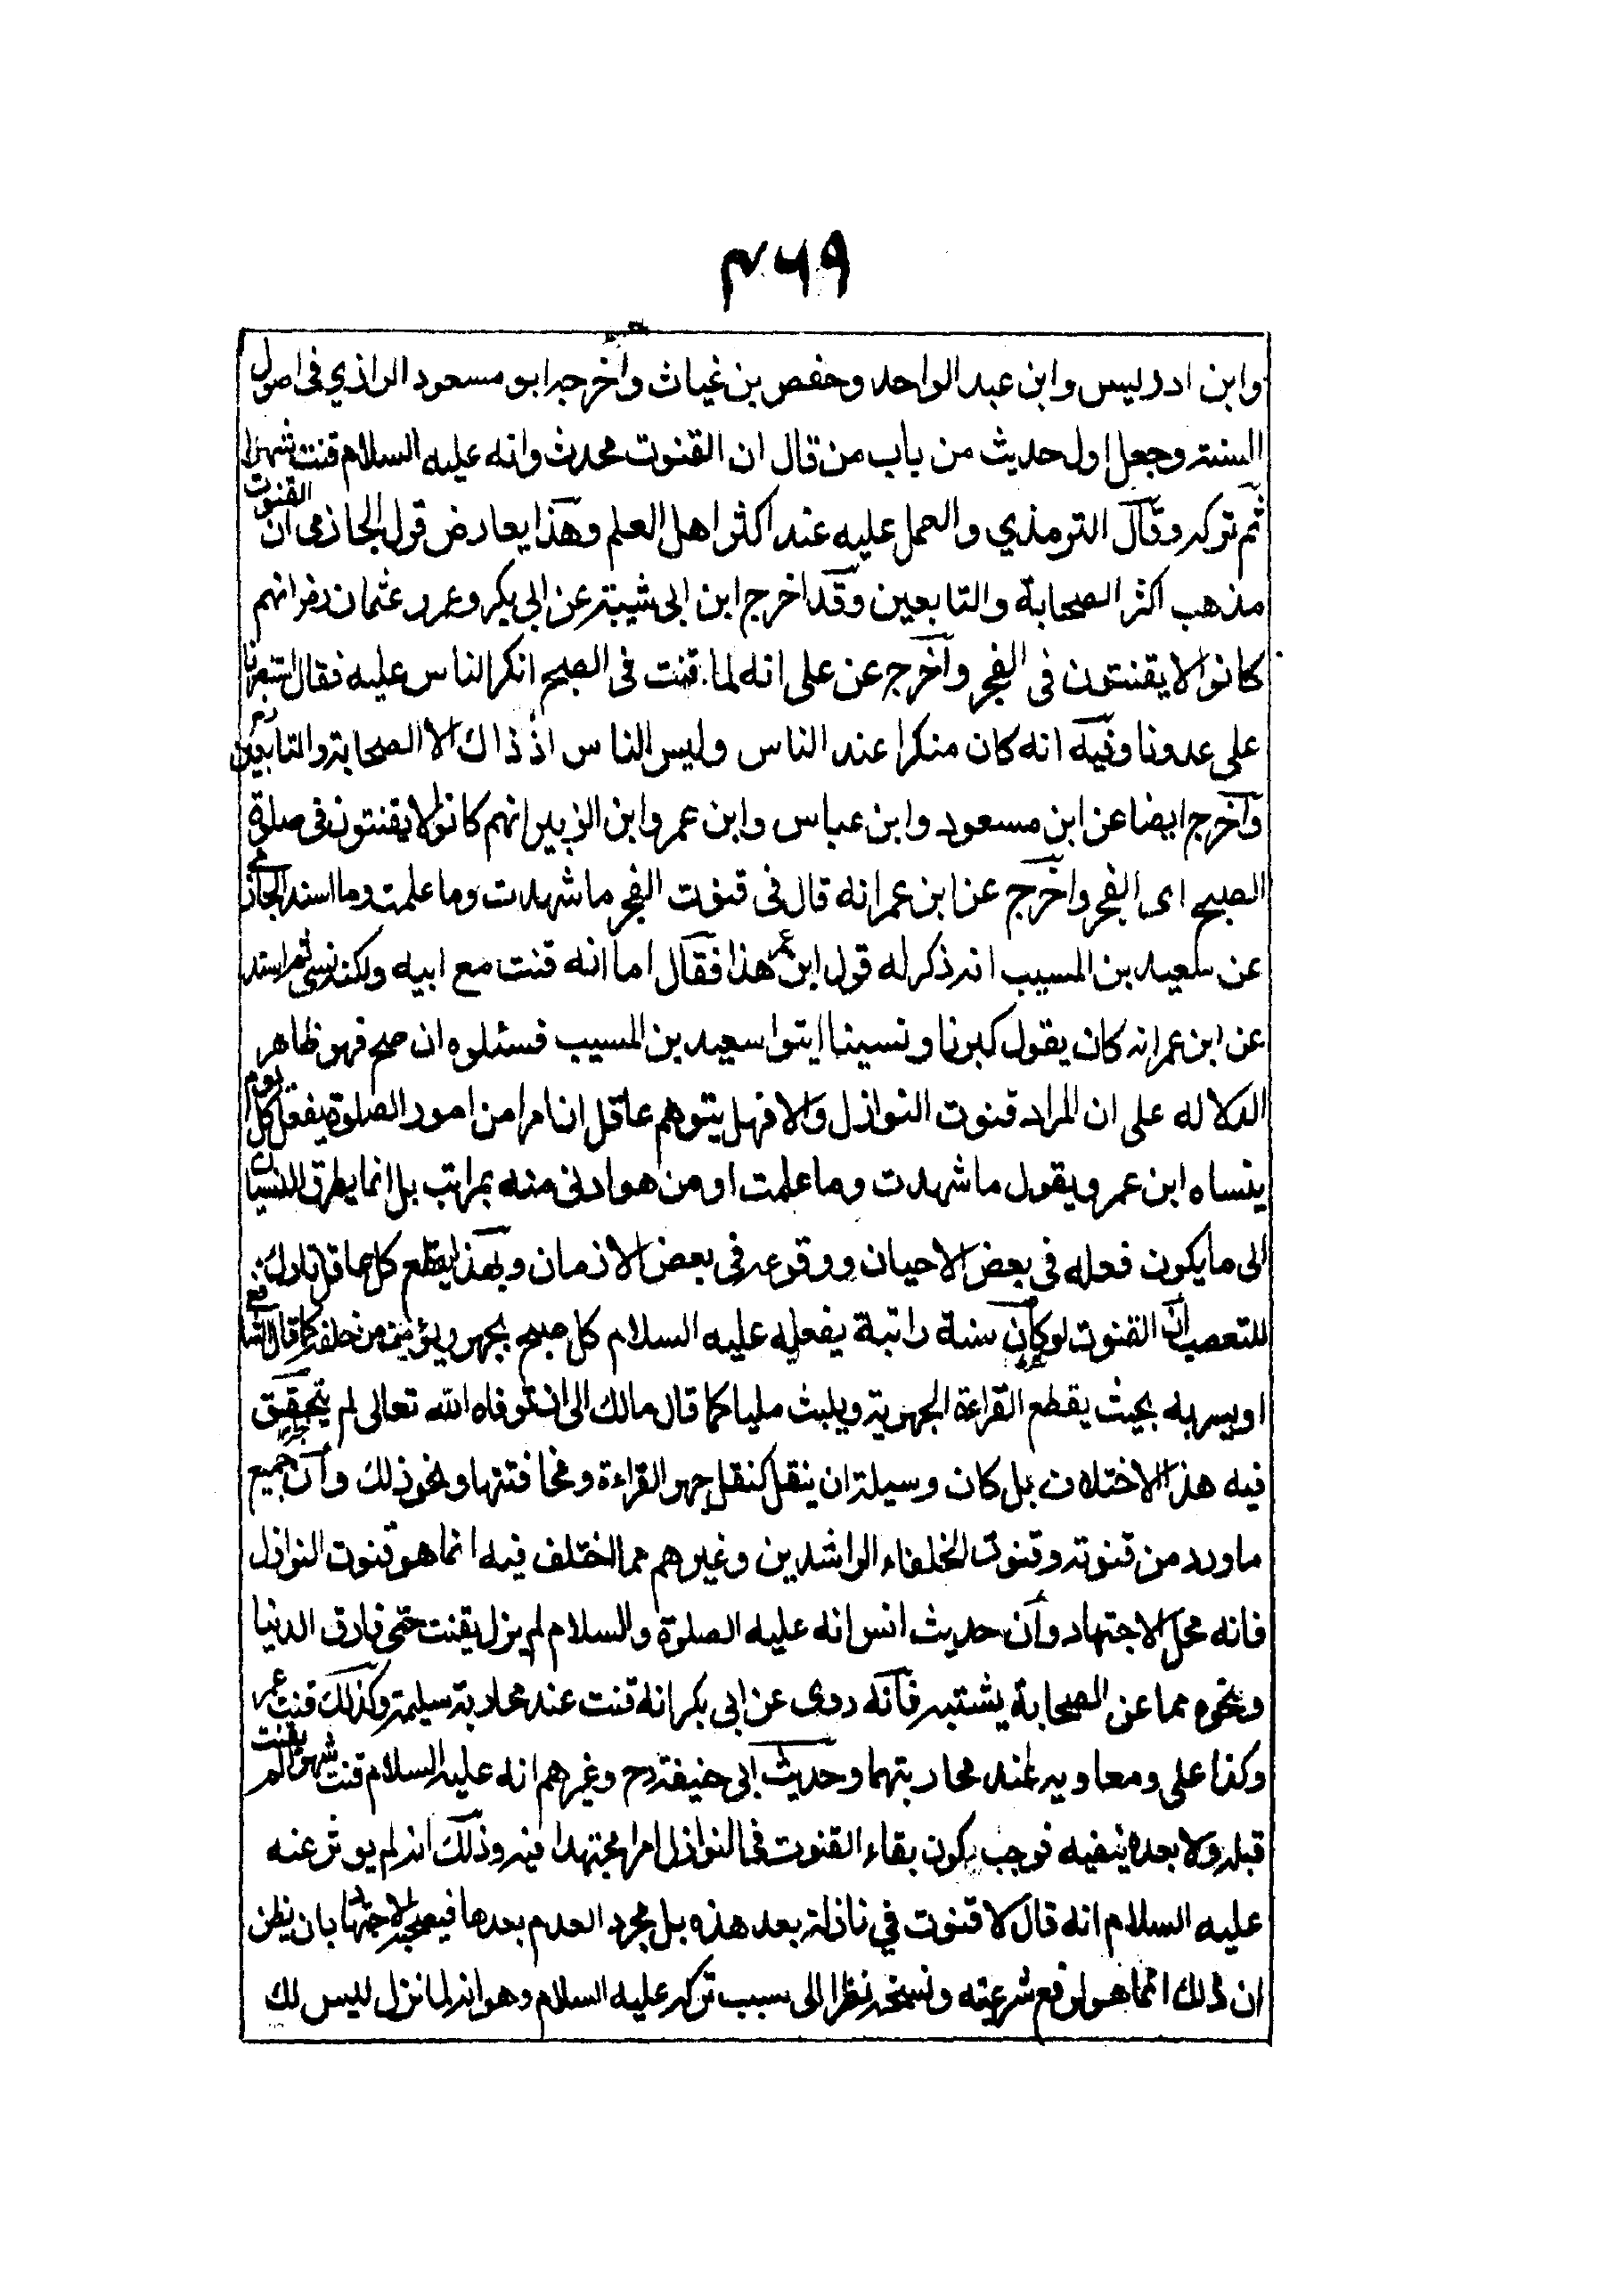 ۴۶۹
وابن ادريس وابن عبد الواحد وحفص بن غياث واخرجه ابو مسعود الرازي فى اصول
السنة وجعل اول حديث من باب من قال ان القنوت محدث وانه عليه السلام قنت شهرا
ثم تركه وقال الترمذي والعمل عليه عند اكثر اهل العلم وهذا يعارض قول الحازمى ان القنوت
مذهب اكثر الصحابة والتابعين وقد اخرج ابن ابى شيبة عن ابى بكر وعمر وعثمان رض انهم
كانوا لا يقنتون فى الفجر واخرج عن على انه لما قنت فى الصبح انكر الناس عليه فقال استنصرنا
على عدونا وفيه انه كان منكرا عند الناس وليس الناس اذ ذاك الا الصحابة والتابعين رض
واخرج ايضا عن ابن مسعود وابن عباس وابن عمر وابن الزبير انهم كانوا لا يقنتون فى صلوة
الصبح اى الفجر واخرج عن ابن عمر انه قال فى قنوت الفجر ما شهدت وما علمت وما اسند الحازمى
عن سعيد بن المسيب انه ذكر له قول ابن عمر هذا فقال اما انه قنت مع ابيه ولكنه نسى ثم اسند
عن ابن عمر انه كان يقول كبرنا ونسينا ايتوا سعيد بن المسيب فسئلوه ان صح فهو ظاهر
الدلاله على ان المراد قنوت النوازل والا فهل يتوهم عاقل ان امرا من امور الصلوة يفعل كل يوم
ينساه ابن عمر ويقول ما شهدت وما علمت او من هو ادنى منه بمراتب بل انما يطرق النسيان
الى ما يكون فعله فى بعض الاحيان ووقوعه فى بعض الازمان وبهذا يقطع كل عاقل تارك
للتعصب ان القنوت لو كان سنة راتبة يفعله عليه السلام كل صبح يجهر ويؤمن من خلفه كما قال الشافعى
او يسر به بحيث يقطع القراءة الجهرية ويلبث مليا كما قال مالك الى ان توفاه الله تعالى لم يتحقق
فيه هذا الاختلاف بل كان وسيلة ان ينقل كنقل جهر القراءة ومخافتتها ونحو ذلك وان جميع
ما ورد من قنوته وقنوت الخلفاء الراشدين وغيرهم مما اختلف فيه انما هو قنوت النوازل
فانه محل الاجتهاد وان حديث انس انه عليه الصلوة والسلام لم يزل يقنت حتى فارق الدنيا
ونحوه مما عن الصحابة يشتبه فانه روى عن ابى بكر انه قنت عند محاربة مسيلمة وكذلك قنت عمر
وكذا على ومعاويه عند محاربتهما وحديث ابى حنيفة رح وغيرهم انه عليه السلام قنت شهرا لم يقنت
قبله ولا بعده ينفيه فوجب كون بقاء القنوت فى النوازل امرا مجتهدا فيه وذلك انه لم يوثر عنه
عليه السلام انه قال لا قنوت في نازلة بعد هذه بل مجرد العدم بعدها فيصح الاجتهاد بان يظن
ان ذلك انما هو لرفع شرعيته ونسخه نظرا الى سبب تركه عليه السلام وهو انه لما نزل ليس لك